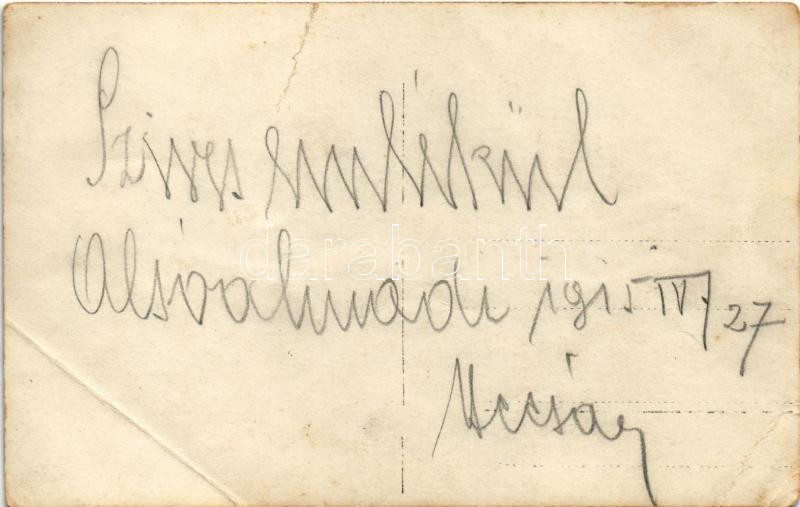 Szives emlékül
Alsóalmádi 1915 IV/27
darabanth